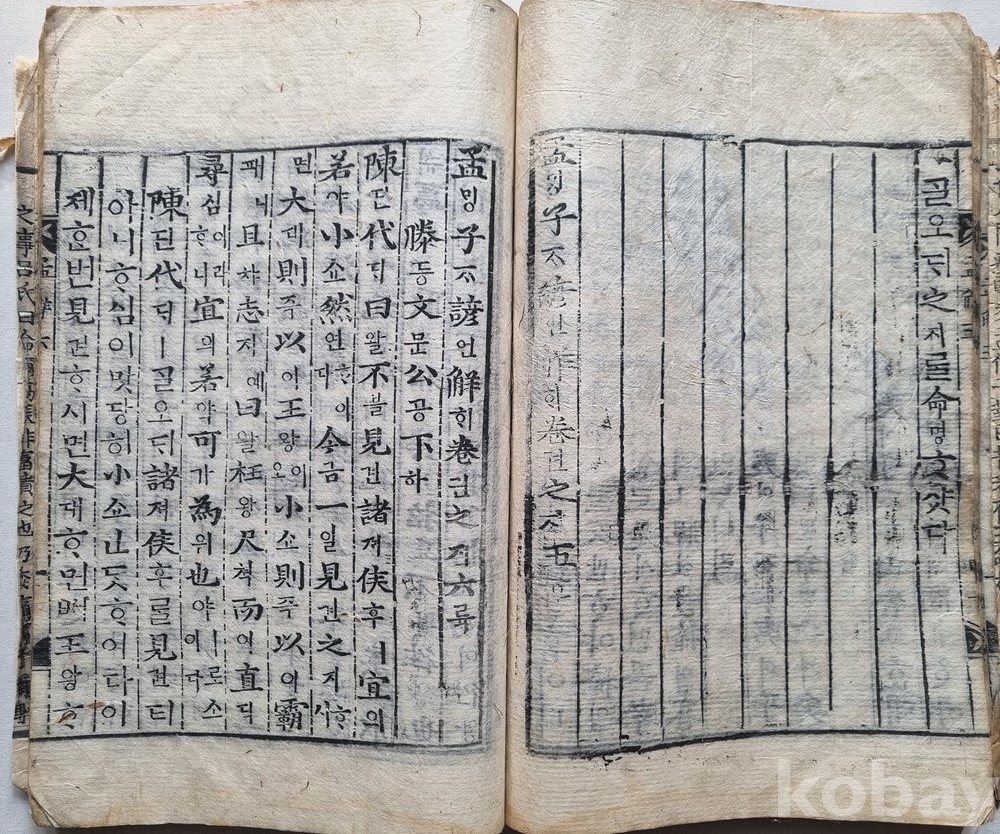 ᄀᆞᆯ오ᄃᆡ之지ᄅᆞᆯ命명ᄒᆞ샷다
孟ᄆᆡᆼ子ᄌᆞ諺언解ᄒᆡ卷권之지五오
孟ᄆᆡᆼ子ᄌᆞ諺언解ᄒᆡ卷권之지六륙
滕등文문公공下하
陳딘代ᄃᆡ曰왈不블見견諸져侯후ㅣ宜의
若약小쇼然연ᄒᆞ이다今금一일見견之지ᄒᆞ시
면大대則즉以이王왕이오小쇼則즉以이霸
패니且챠志지예曰왈枉왕尺쳑而이直딕
尋심이라ᄒᆞ니宜의若약可가為위也야ㅣ로소이다
陳딘代ᄃᆡㅣᄀᆞᆯ오ᄃᆡ諸져侯후ᄅᆞᆯ見견티
아니ᄒᆞ심이맛당히小쇼ᄒᆞᆫᄃᆞᆺᄒᆞ여이다이
제ᄒᆞᆫ번見견ᄒᆞ시면大대ᄒᆞ면ᄡᅥ王왕ᄒᆞ
kobay